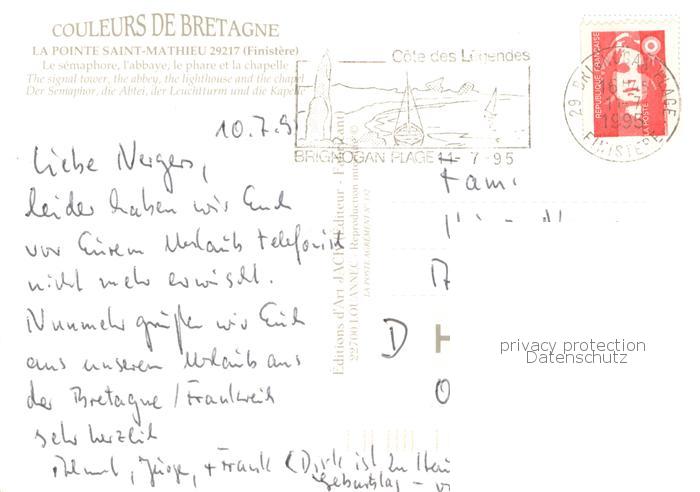 COULEURS DE BRETAGNE
LA POINTE SAINT-MATHIEU 29217 (Finistère)
Le sémaphore, l'abbaye, le phare et la chapelle
The signal tower, the abbey, the lighthouse and the chapel
Der Semaphor, die Abtei, der Leuchtturm und die Kapelle
Côte des Légendes
BRIGNOGAN PLAGE 11-7-95
RÉPUBLIQUE FRANÇAISE
LA POSTE
29 BRIGNOGAN PLAGE
11-7
1995
FINISTERE
10.7.95
Liebe Nergers,
leider haben wir Euch
vor Eurem Urlaub telefonisch
nicht mehr erwischt.
Nunmehr grüßen wir Euch
aus unserem Urlaub aus
der Bretagne / Frankreich
sehr herzlich
Jürgen, + Frank (Dirk ist zu
Geburtstag -
Editions d'Art JACK Editeur
22700 LOUANNEC - Reproduction interdite ©
LA POSTE AGREMENT N°
Fam
D
privacy protection
Datenschutz